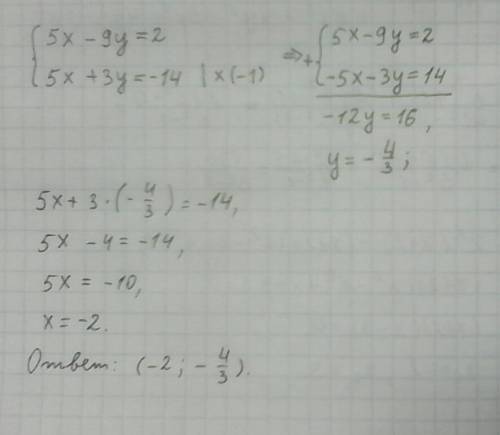 { 5x - 9y = 2
5x + 3y = -14 | x (-1)
⇒ + { 5x - 9y = 2
-5x - 3y = 14
-12y = 16,
y = - 4/3 ;
5x + 3 · (- 4/3) = -14,
5x - 4 = -14,
5x = -10,
x = -2.
Ответ: (-2 ; - 4/3).